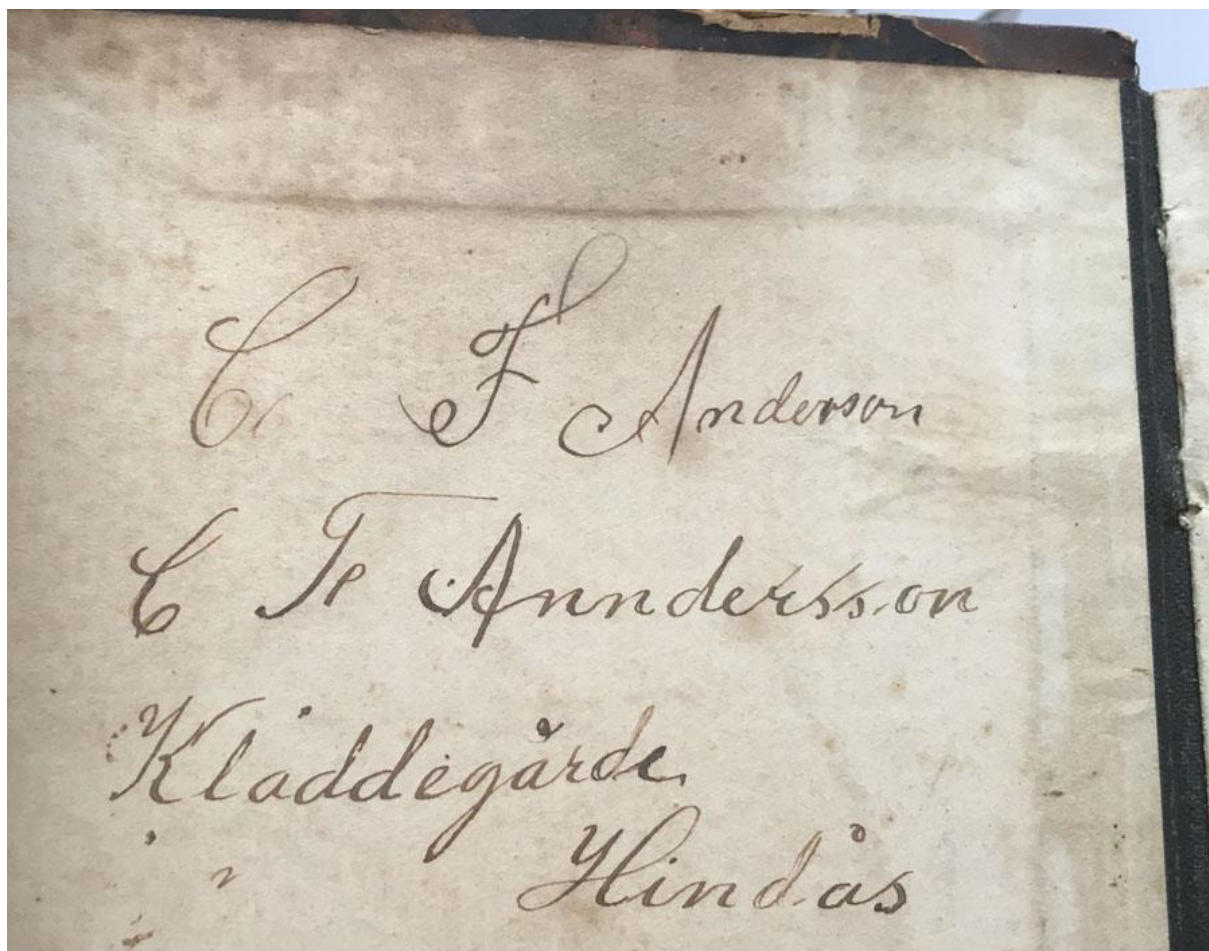 C F Anderson
C F Anndersson
Kläddegärde
Hindås